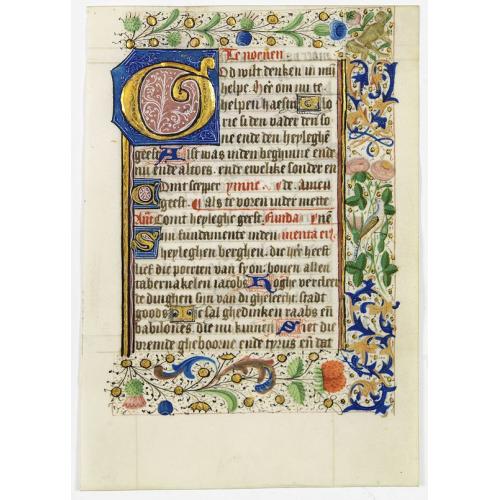 Te noenen
God wilt denken in mij
helpe. Heer om mi te
helpen haestu Glo
rie si den vader den so
ne ende den heyleghe
geest Alst was inden beghinne ende
nu ende altoes. ende ewelike sonder en
Comt scepper ymne. de. amen
geest. als te voren vider mette
Ant Comt heyleghe geest. Funda
Sijn fundamente inden menta ei
heyleghen berghen. die heer heeft
lief die poerten van syon. boven allen
tabernakelen iacobs Hoghe dinghen
sijn van di gheleecht. stadt
goods Ic sal ghedinken raabs en
babilones. die mi kinnen Siet die
vremde gheboorne ende tyrus en dat